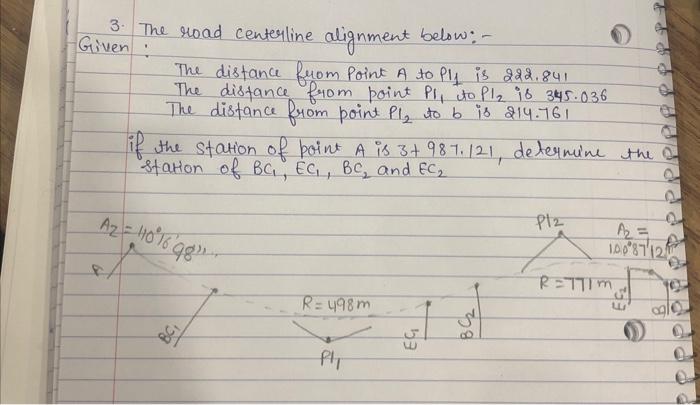 3. The road centerline alignment below:-
Given :
The distance from Point A to PI1 is 222.841
The distance from point PI1 to PI2 is 345.036
The distance from point PI2 to b is 214.761
if the station of point A is 3+987.121, determine the
station of BC1, EC1, BC2 and EC2
PI2
AZ = 110°16'98"
AZ =
100°87'12"
A
R = 498m
R = 771m
BC1
PI1
EC1
BC2
EC2
B